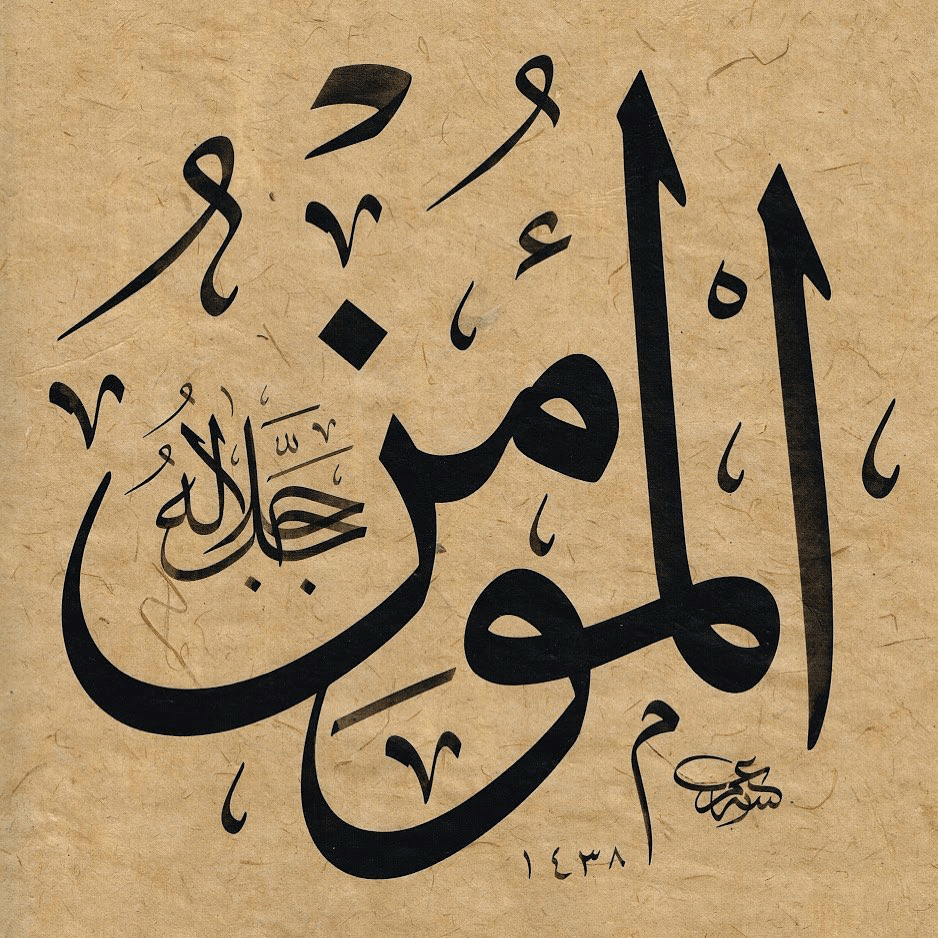 المؤمن
جل جلاله
١٤٣٨